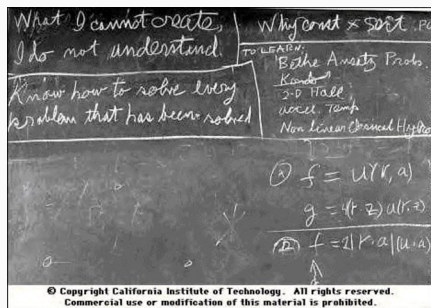 What I cannot create,
I do not understand.
Know how to solve every
problem that has been solved
Why const × sort . PO
TO LEARN:
Bethe Ansatz Probs.
Kondo
2-D Hall
accel. Temp
Non Linear Classical Hydro
Ⓐ f = u(r, a)
g = 4(r·z) u(r, z)
Ⓑ f = 2|r·a|(u·a)
© Copyright California Institute of Technology. All rights reserved.
Commercial use or modification of this material is prohibited.